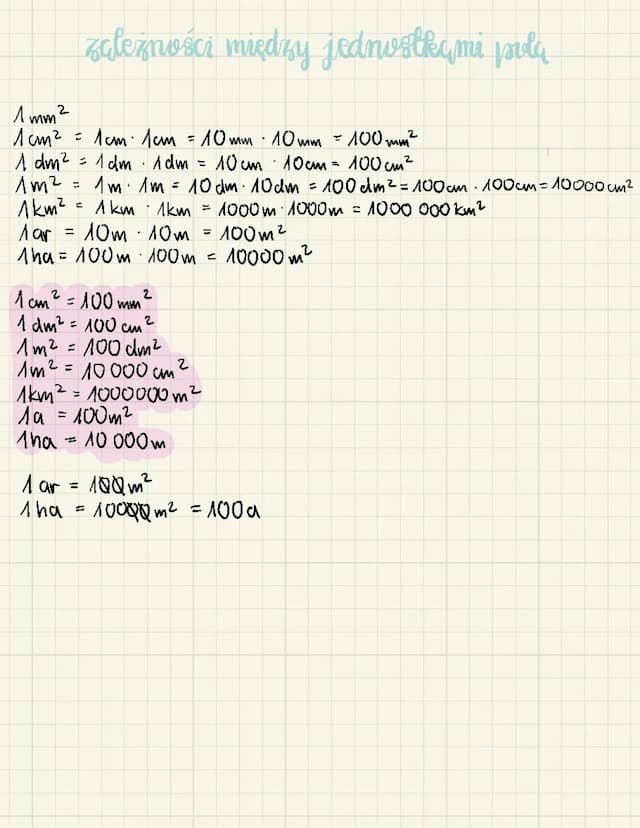 zależności między jednostkami pola
1 mm²
1 cm² = 1cm · 1cm = 10 mm · 10 mm = 100 mm²
1 dm² = 1 dm · 1 dm = 10 cm · 10 cm = 100 cm²
1 m² = 1m · 1m = 10 dm · 10 dm = 100 dm² = 100 cm · 100 cm = 10000 cm²
1 km² = 1 km · 1km = 1000 m · 1000 m = 1000 000 km²
1 ar = 10m · 10m = 100 m²
1 ha = 100 m · 100 m = 10000 m²
1 cm² = 100 mm²
1 dm² = 100 cm²
1 m² = 100 dm²
1m² = 10 000 cm²
1km² = 1000000 m²
1a = 100m²
1ha = 10 000m
1 ar = 100 m²
1 ha = 10000 m² = 100a